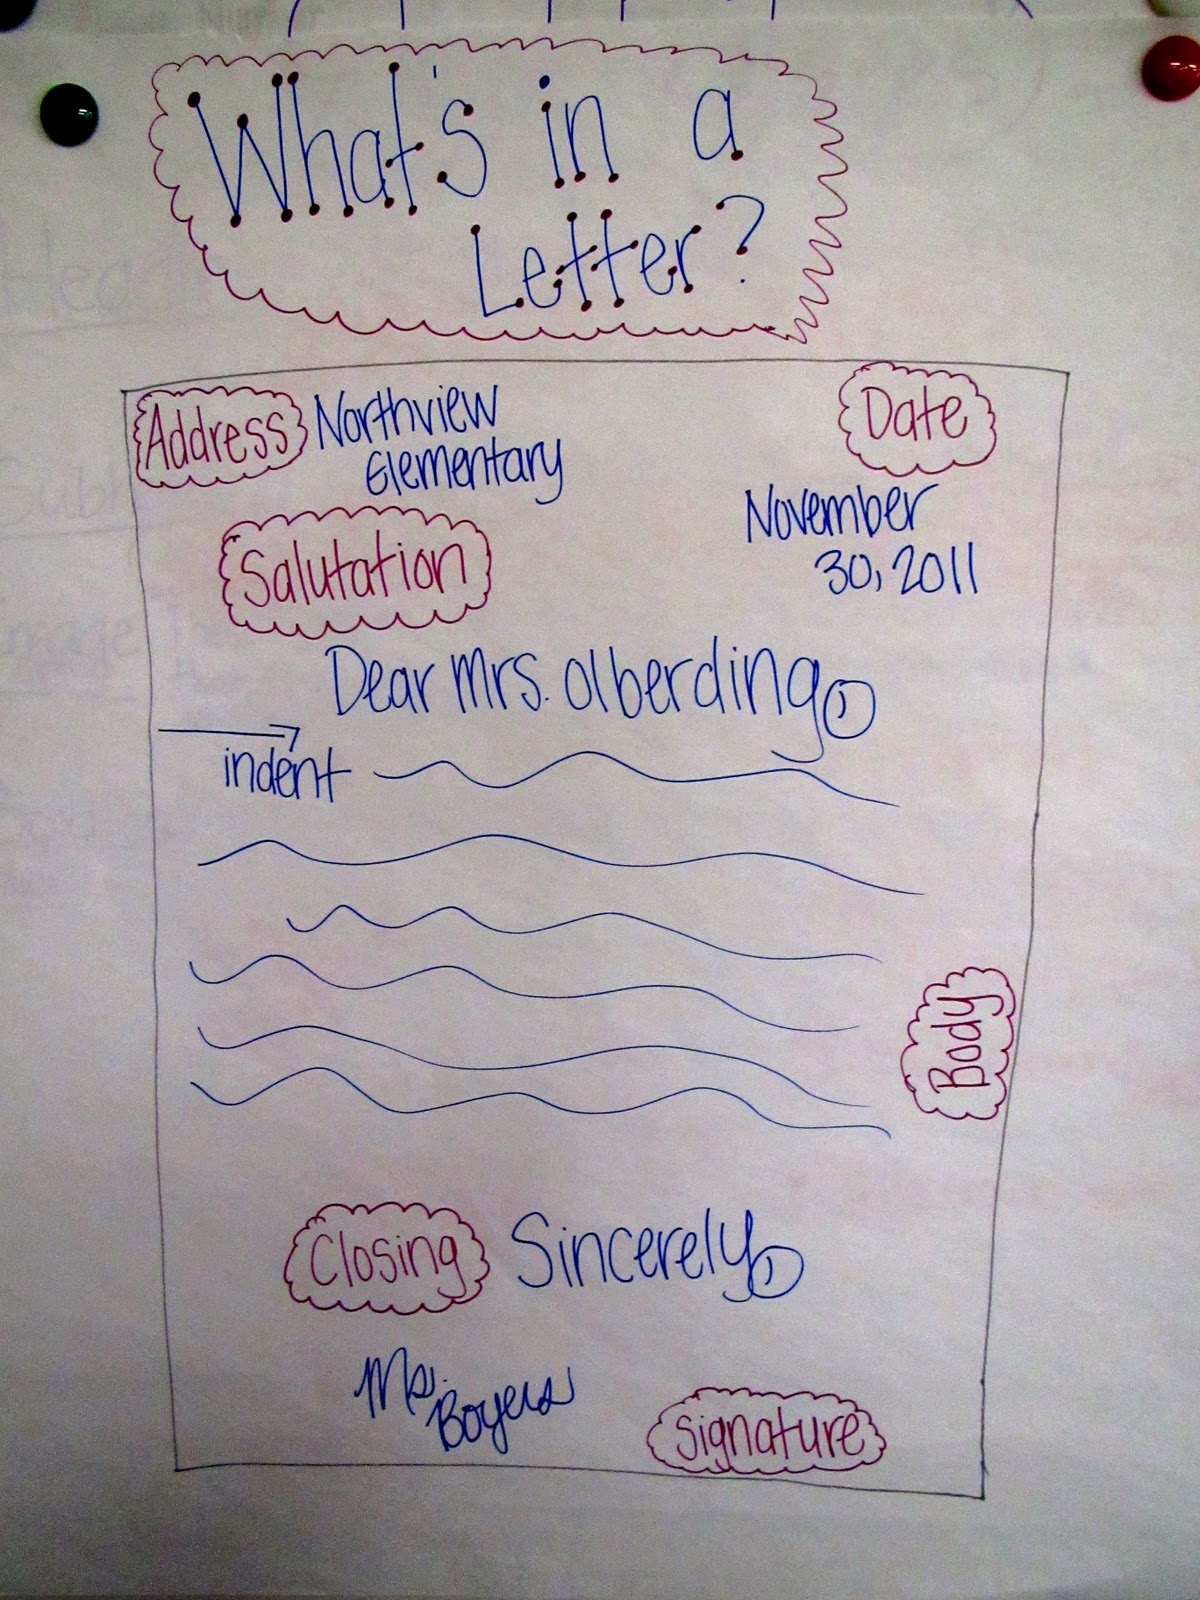 What's in a
Letter?
Address Northview
Elementary
Date
November
30, 2011
Salutation
Dear Mrs. Olberding,
indent
Body
Closing Sincerely,
Ms.
Boyers
Signature